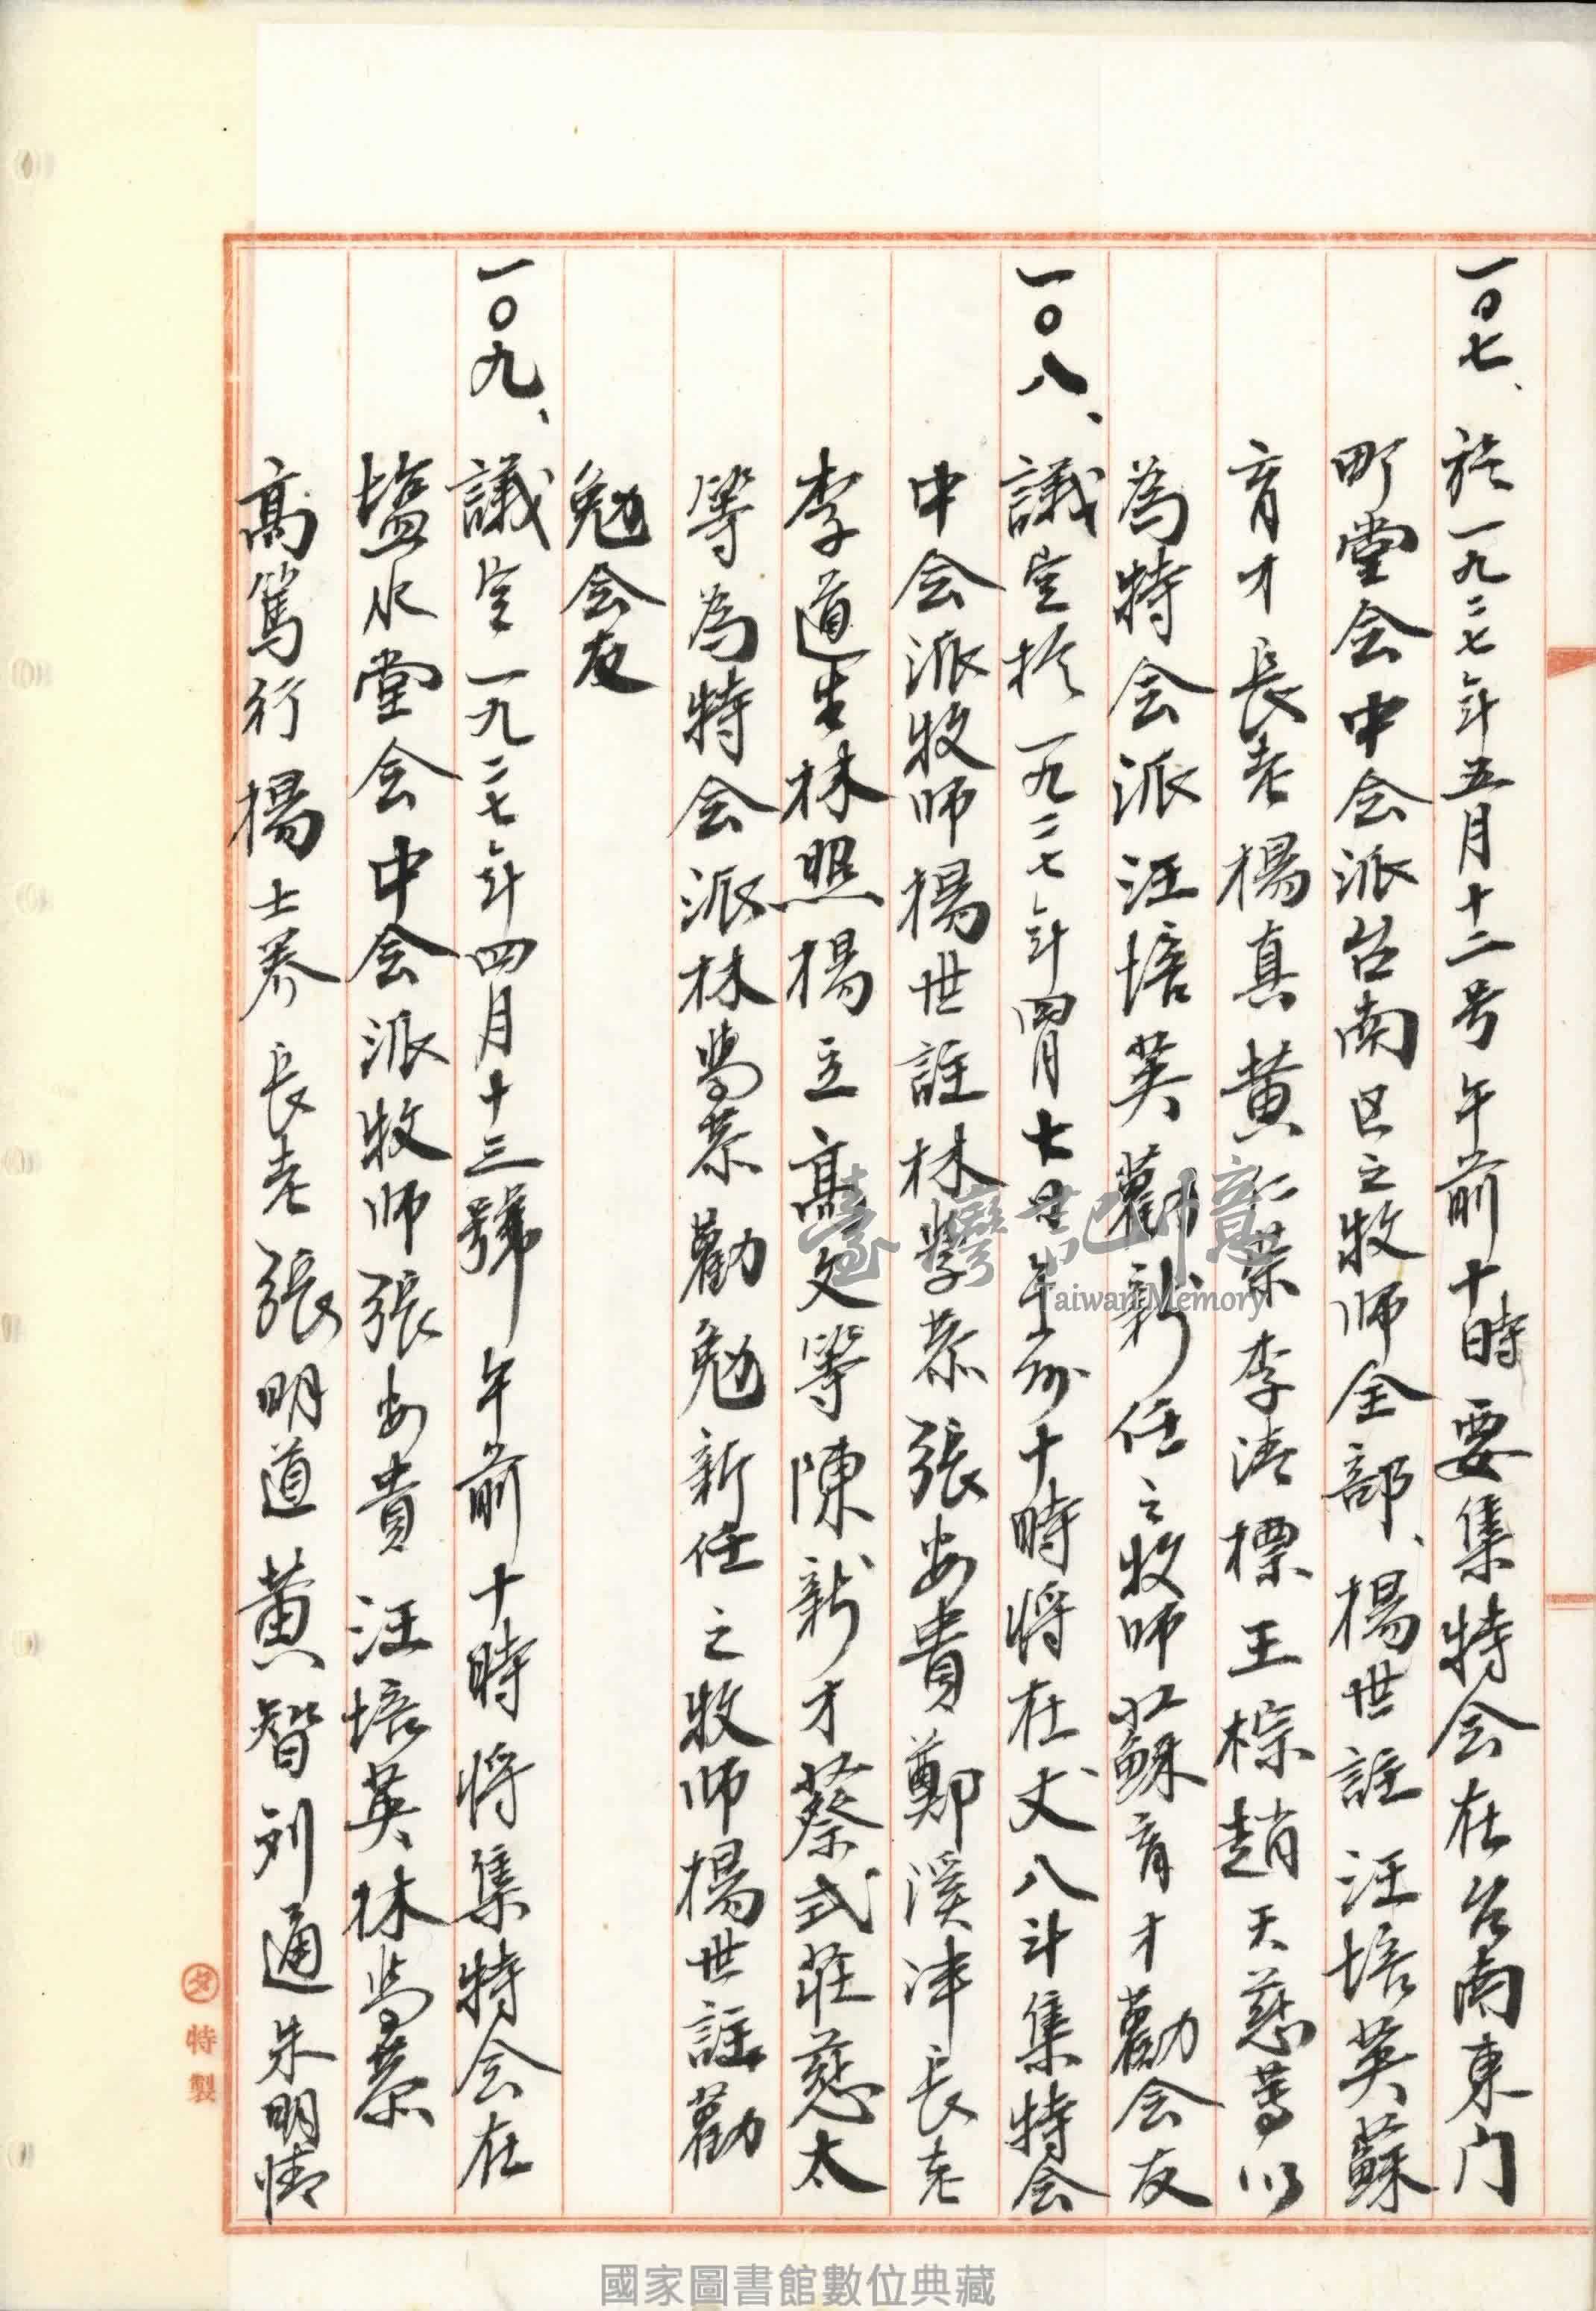 一〇七、於一九二七年五月十二号午前十時要集特会在台南東门
町堂会中会派台南区之牧师全部、楊世註汪培英蘇
育才長老楊真黄仁榮李清標王棕趙天慈等以
為特会派汪培英勸新任之牧师蘇育才勸会友
一〇八、議定於一九二七年四月七号午前十時将在丈八斗集特会
中会派牧师楊世註林學恭張安貴鄭溪泮長老
李道生林照楊立高文等陳新才蔡式莊慈太
等為特会派林學恭勸勉新任之牧师楊世註勸
勉会友
一〇九、議定一九二七年四月十三號午前十時将集特会在
塩水堂会中会派牧师張安貴汪培英林學恭
高篤行楊士养長老張明道黄智列通朱明情
タ特製
臺灣記憶
Taiwan Memory
國家圖書館數位典藏